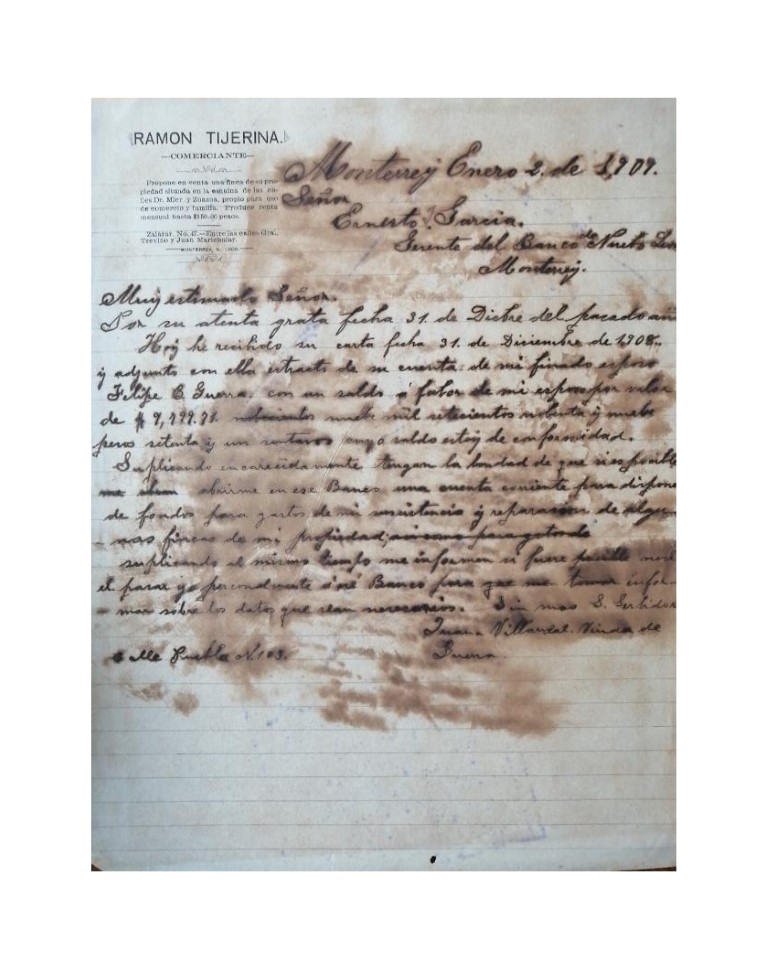 RAMON TIJERINA.
—COMERCIANTE—
Propone en venta una finca de su pro-
piedad situada en la esquina de las ca-
lles Dr. Mier y Zuazua, propio para uso
de comercio y familia. Produce renta
mensual hasta $150.00 pesos.
Zalazar. No. 47.—Entre las calles Gral.
Treviño y Juan
MONTERREY, N.
Monterrey Enero 2. de 1,909.
Señor
Ernesto Garcia.
Gerente del Banco de Nuevo Leon
Monterrey.
Muy estimado Señor.
Por su atenta grata fecha 31. de Dicbre del pasado año
Hoy he recibido su carta fecha 31. de Diciembre de 1908.
y adjunto con ella estracto de su cuenta. de mi finado esposo
Felipe G. Guerra, con un saldo á fabor de mi esposo por valor
de $ 9,799.71. nuebe mil setecientos nobenta y nuebe
pesos setenta y un sentavos cuyo saldo estoy de conformidad.
Suplicando encarecidamente tengan la bondad de que si es posible
abrirme en ese Banco una cuenta coriente para dispone
de fondos para gastos de mi susistencia y reparacion de algu
- nas fincas de mi propiedad
suplicando al mismo tiempo me informen si fuere posible
el pasar yo personalmente á ese Banco para que me tomen infor-
- mes sobre los datos que sean necesarios. Sin mas S. Serbidor
Juana Villarreal. Viuda de
Calle Puebla N. 103. Guerra